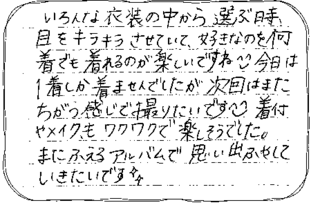 いろんな衣装の中から選ぶ時、
目をキラキラさせていて、好きなのを何
着でも着れるのが楽しいですね☺今日は
1着しか着ませんでしたが次回はまた
ちがう感じで撮りたいです☺着付
やメイクもワクワクで楽しそうでした。
またふえるアルバムで思い出ふやして
いきたいです✨